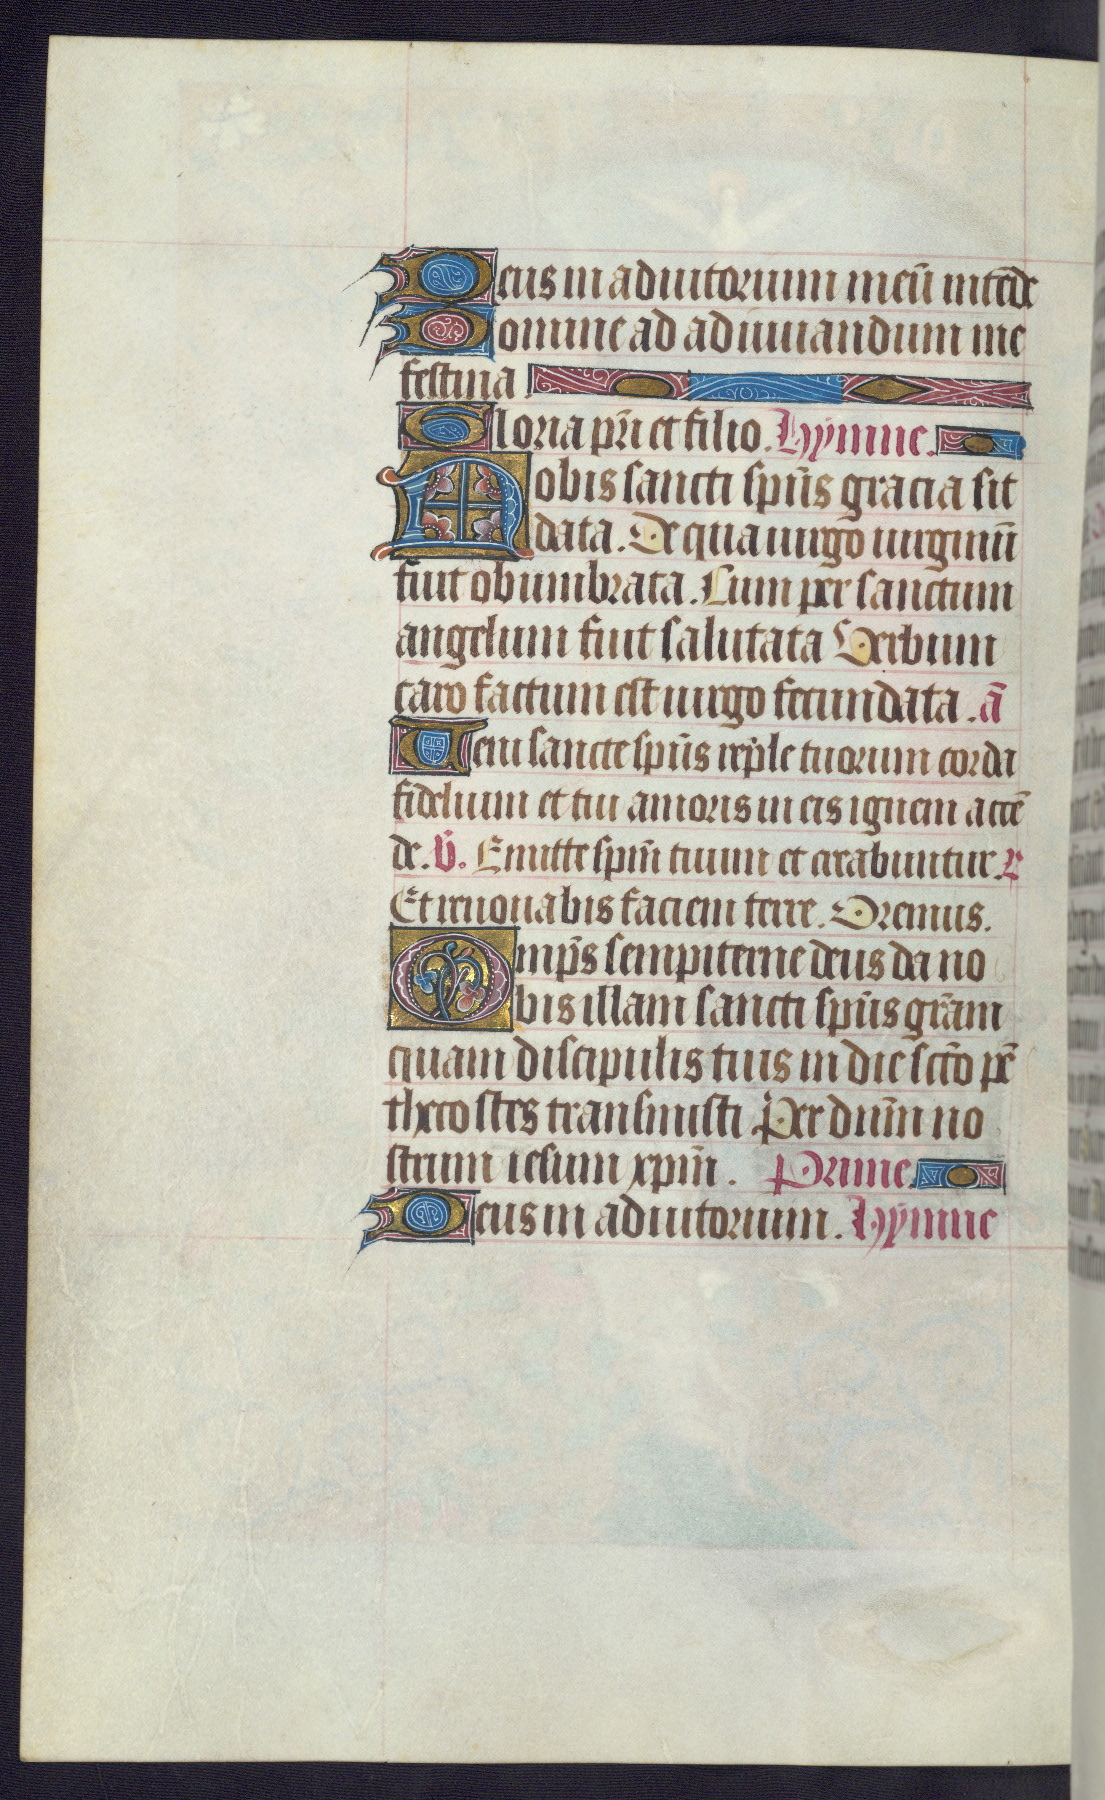 Deus in adiutorium meū intēde
Domine ad adiuuandum me
festina
Gloria pr̄i et filio. Hymne.
Nobis sancti sp̄us gracia sit
data. De qua uirgo uirginū
fuit obumbrata. Cum per sanctum
angelum fuit salutata Verbum
caro factum est uirgo fecundata. ā
Veni sancte sp̄us reple tuorum corda
fidelium et tui amoris in eis ignem accē
de. v̄. Emitte spm̄ tuum et creabuntur. R
Et renouabis faciem terre. Oremus.
Omp̄s sempiterne deus da no
bis illam sancti sp̄us gr̄am
quam discipulis tuis in die sctō pē
thecostes transmisti Per dnm̄ no
strum iesum xpm̄. Prime.
Deus in adiutorium. Hymne